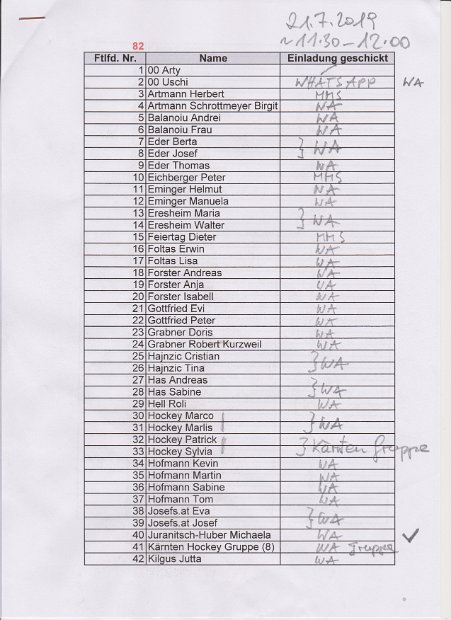 21.7.2019
~ 11.30 - 12.00
82
Ftlfd. Nr. Name Einladung geschickt
1 00 Arty
2 00 Uschi WHATSAPP WA
3 Artmann Herbert MMS
4 Artmann Schrottmeyer Birgit WA
5 Balanoiu Andrei WA
6 Balanoiu Frau WA
7 Eder Berta
8 Eder Josef } WA
9 Eder Thomas WA
10 Eichberger Peter MMS
11 Eminger Helmut WA
12 Eminger Manuela WA
13 Eresheim Maria
14 Eresheim Walter } WA
15 Feiertag Dieter MMS
16 Foltas Erwin WA
17 Foltas Lisa WA
18 Forster Andreas WA
19 Forster Anja WA
20 Forster Isabell WA
21 Gottfried Evi WA
22 Gottfried Peter WA
23 Grabner Doris WA
24 Grabner Robert Kurzweil WA
25 Hajnzic Cristian
26 Hajnzic Tina } WA
27 Has Andreas
28 Has Sabine } WA
29 Hell Roli WA
30 Hockey Marco
31 Hockey Marlis } WA
32 Hockey Patrick
33 Hockey Sylvia } Kärnten Gruppe
34 Hofmann Kevin WA
35 Hofmann Martin WA
36 Hofmann Sabine WA
37 Hofmann Tom WA
38 Josefs.at Eva
39 Josefs.at Josef } WA
40 Juranitsch-Huber Michaela WA ✓
41 Kärnten Hockey Gruppe (8) WA Gruppe
42 Kilgus Jutta WA